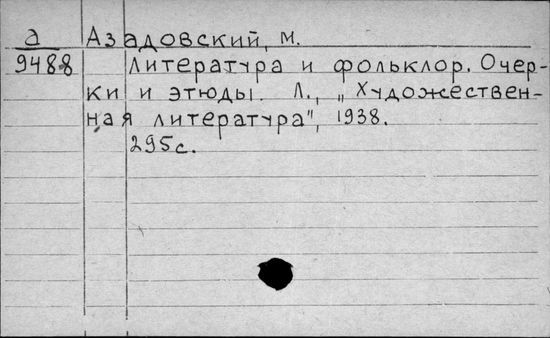 а Азадовский, м.
9488 Литература и фольклор. Очер-
ки и этюды. Л., „Художествен-
ная литература", 1938.
295с.